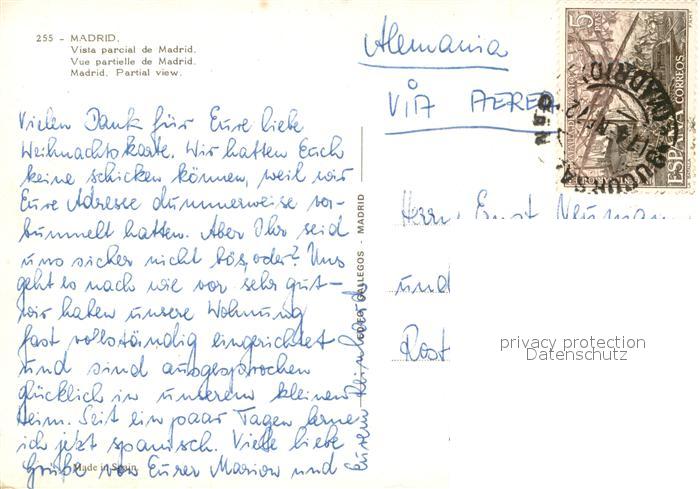 255 - MADRID.
Vista parcial de Madrid.
Vue partielle de Madrid.
Madrid. Partial view.
Alemania
VIA AEREA
Vielen Dank für Eure liebe
Weihnachtskarte. Wir hatten Euch
keine schicken können, weil wir
Eure Adresse dummerweise ver-
bummelt hatten. Aber Ihr seid
uns sicher nicht bös, oder? Uns
geht es nach wie vor sehr gut -
wir haben unsere Wohnung
fast vollständig eingerichtet
und sind ausgesprochen
glücklich in unserem kleinen
Heim. Seit ein paar Tagen lerne
ich jetzt spanisch. Viele liebe
Grüße von Eurer Marion und
Eurem Reinhard
Made in Spain
GALLEGOS - MADRID
5
PTAS
ESPAÑA CORREOS
MADRID
SUCURSAL
Herrn Ernst Neumann
und
Rost
privacy protection
Datenschutz